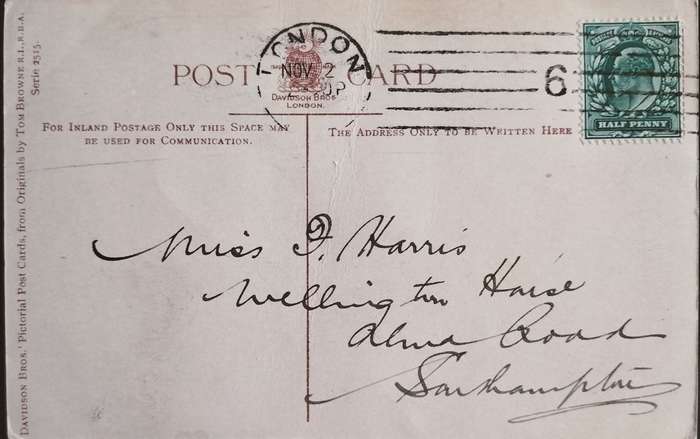 DAVIDSON BROS.' PICTORIAL POST CARDS, FROM ORIGINALS BY TOM BROWNE R.I., R.B.A.
SERIE 2515.
POST CARD
DAVIDSON BROS.
LONDON.
LONDON
NOV 2
6
HALF PENNY
FOR INLAND POSTAGE ONLY THIS SPACE MAY
BE USED FOR COMMUNICATION.
THE ADDRESS ONLY TO BE WRITTEN HERE
Miss F. Harris
Wellington House
Alma Road
Southampton